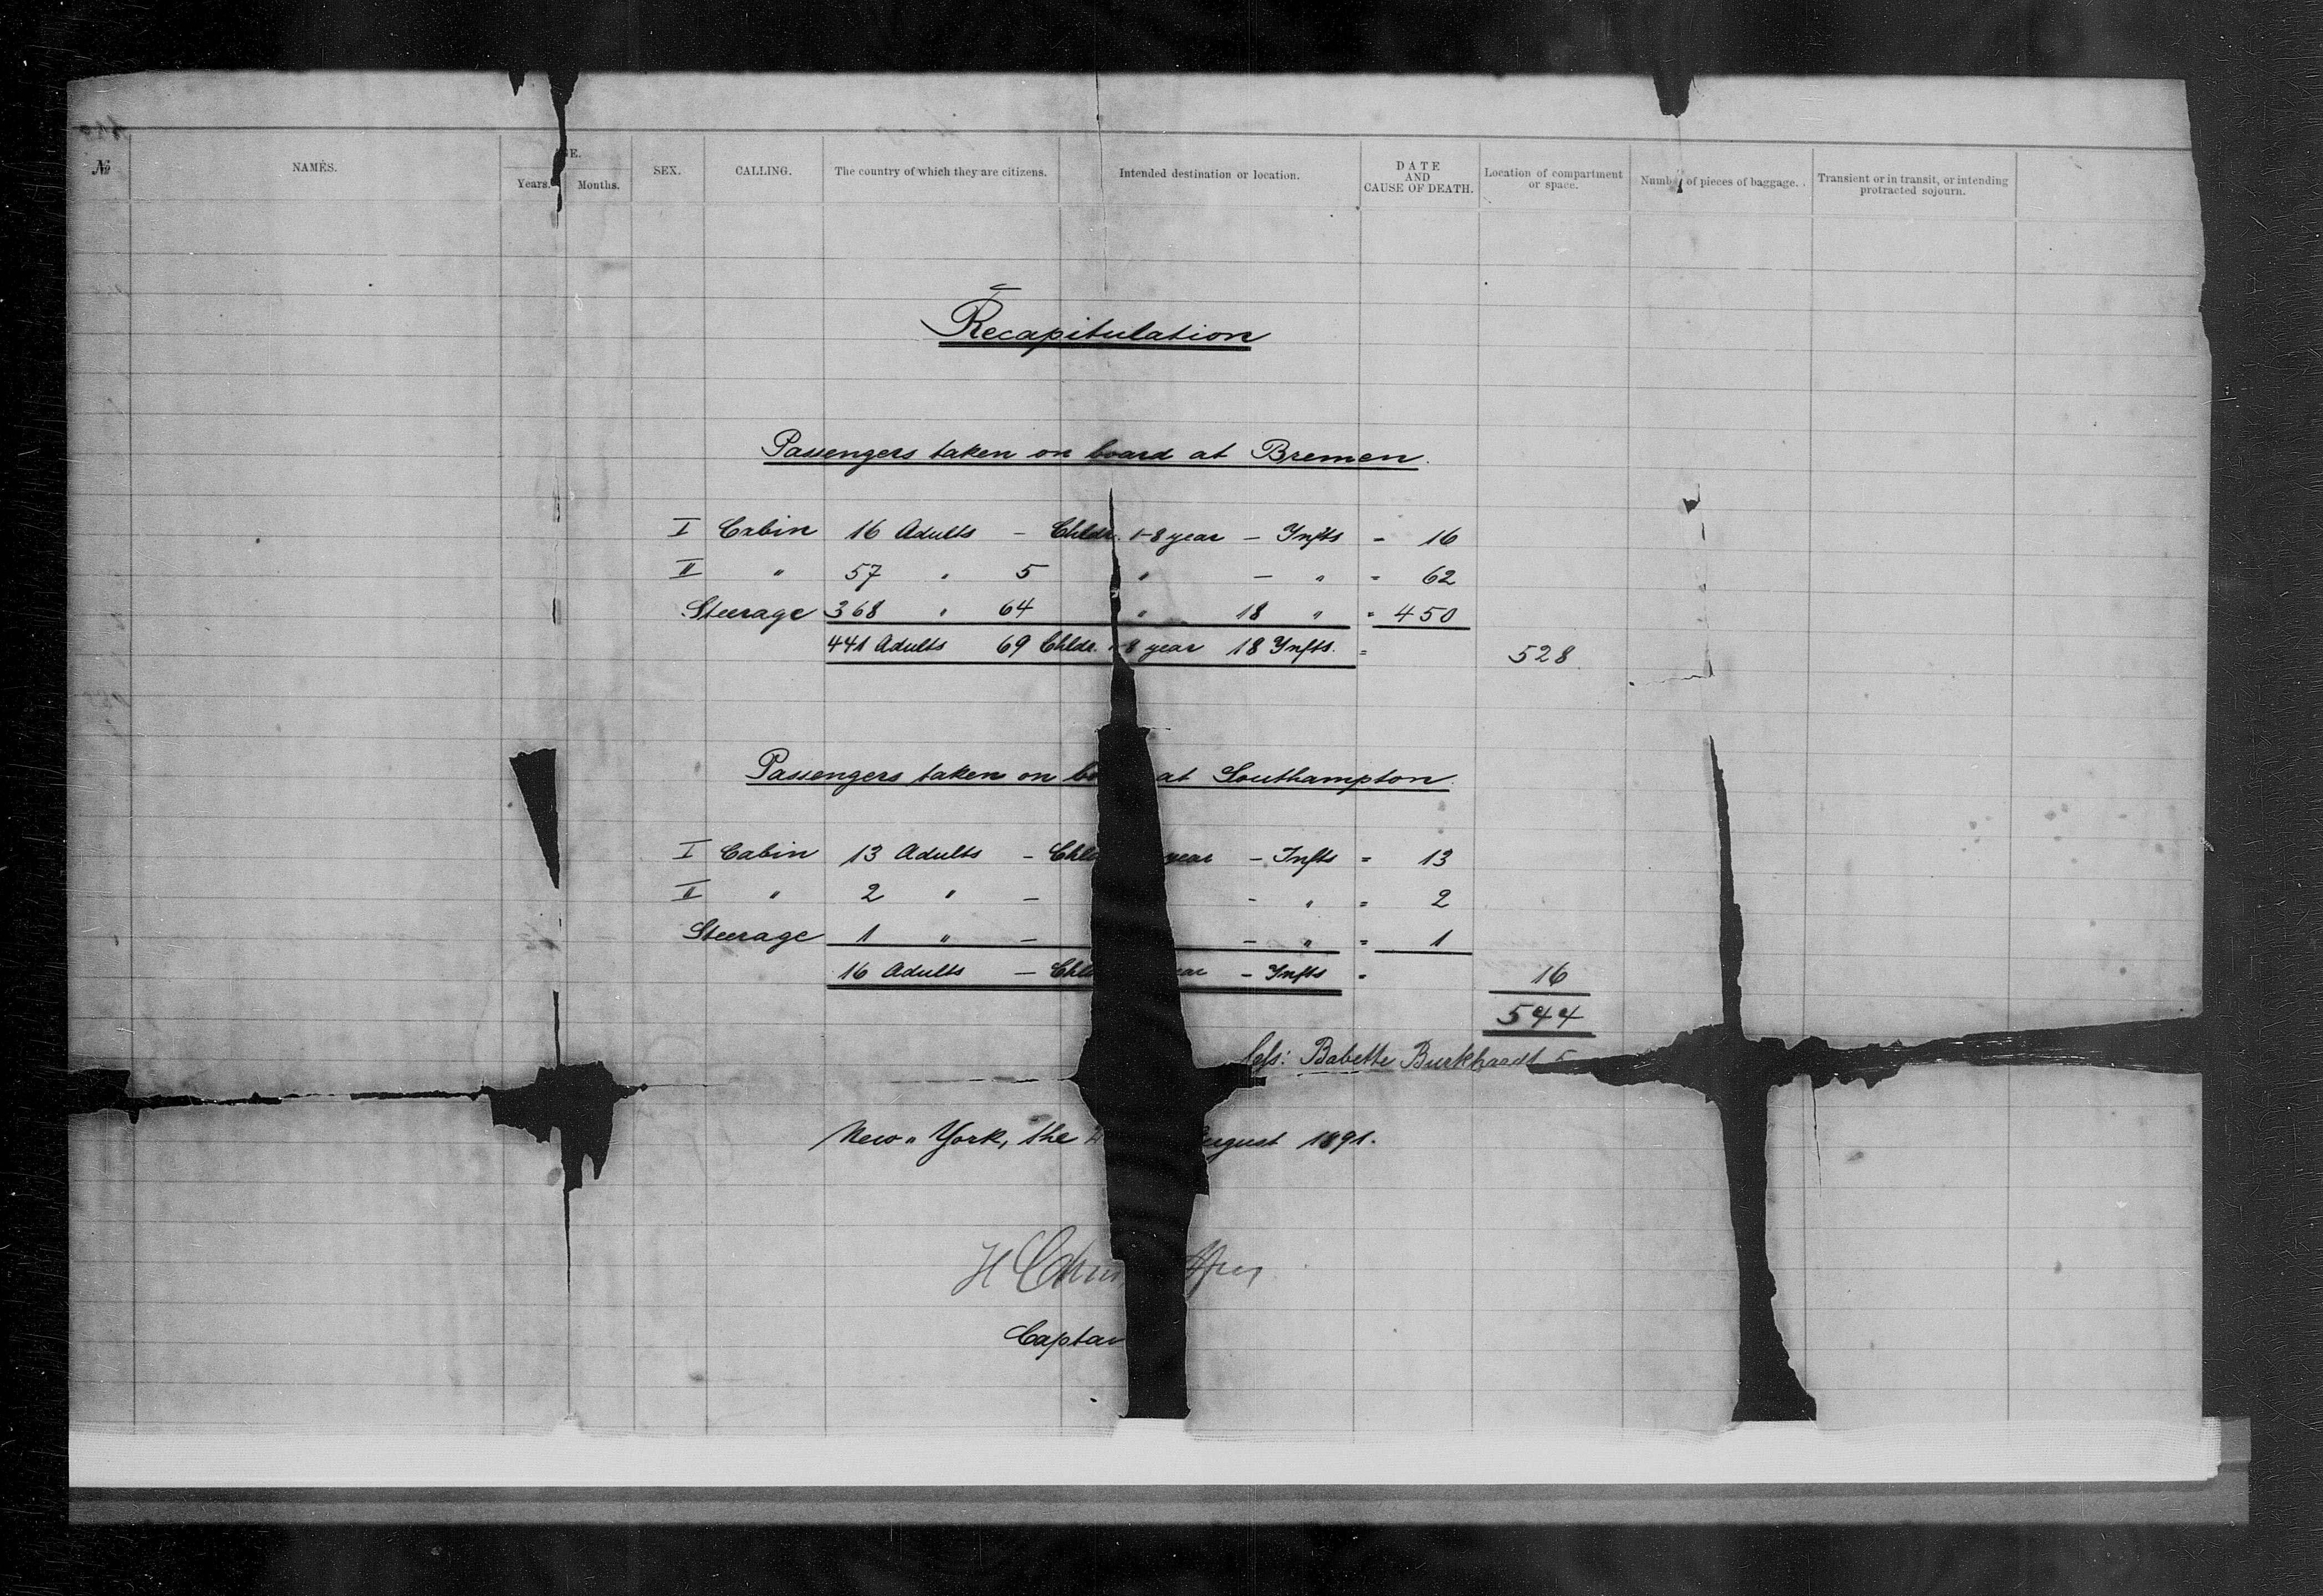 № NAMES. AGE. Years. Months. SEX. CALLING. The country of which they are citizens. Intended destination or location. DATE AND CAUSE OF DEATH. Location of compartment or space. Number of pieces of baggage. Transient or in transit, or intending protracted sojourn.
Recapitulation
Passengers taken on board at Bremen.
I Cabin 16 Adults - Chldr. 1-8 year - Infts = 16
II " 57 " 5 " - " = 62
Steerage 368 " 64 " 18 " = 450
441 Adults 69 Chldr. 1-8 year 18 Infts. = 528
Passengers taken on bo at Southampton.
I Cabin 13 Adults - Chld year - Infts = 13
II " 2 " - - " = 2
Steerage 1 " - - " = 1
16 Adults - Chld ear - Infts = 16
544
Babette Burkhardt
New-York, the August 1891.
H
Captai